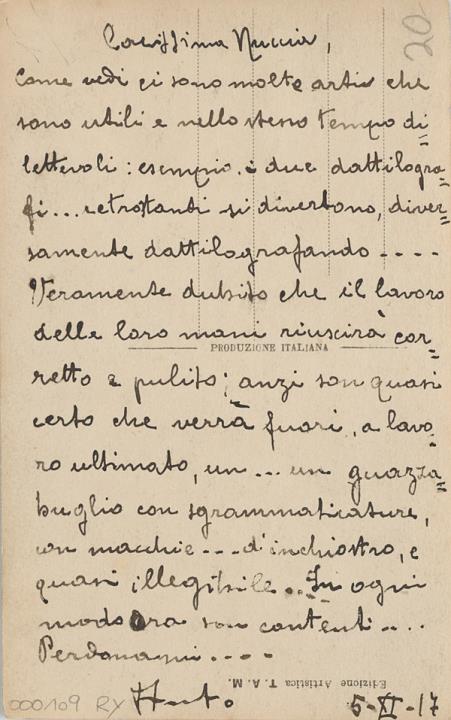 20
Carissima Nuccia,
Come vedi ci sono molte arti che
sono utili e nello stesso tempo di=
lettevoli: esempio. i due dattilogra=
fi... retrostanti si divertono, diver=
samente dattilografando ----
Veramente dubito che il lavoro
delle loro mani riuscirà cor=
PRODUZIONE ITALIANA
retto e pulito; anzi son quasi
certo che verrà fuori, a lavo=
ro ultimato, un ... un guazza=
buglio con sgrammaticature,
con macchie --- d'inchiostro, e
quasi illegibile... In ogni
modo Ora son contenti ....
Perdonami ----
Edizione Artistica T. A. M.
000109 RX
5-XI-17